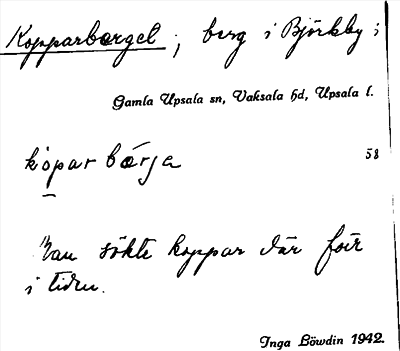 Kopparberget; berg i Björkby;
Gamla Upsala sn, Vaksala hd, Upsala l.
kòpar bærja
58
Man sökte koppar där förr
i tiden.
Inga Löwdin 1942.